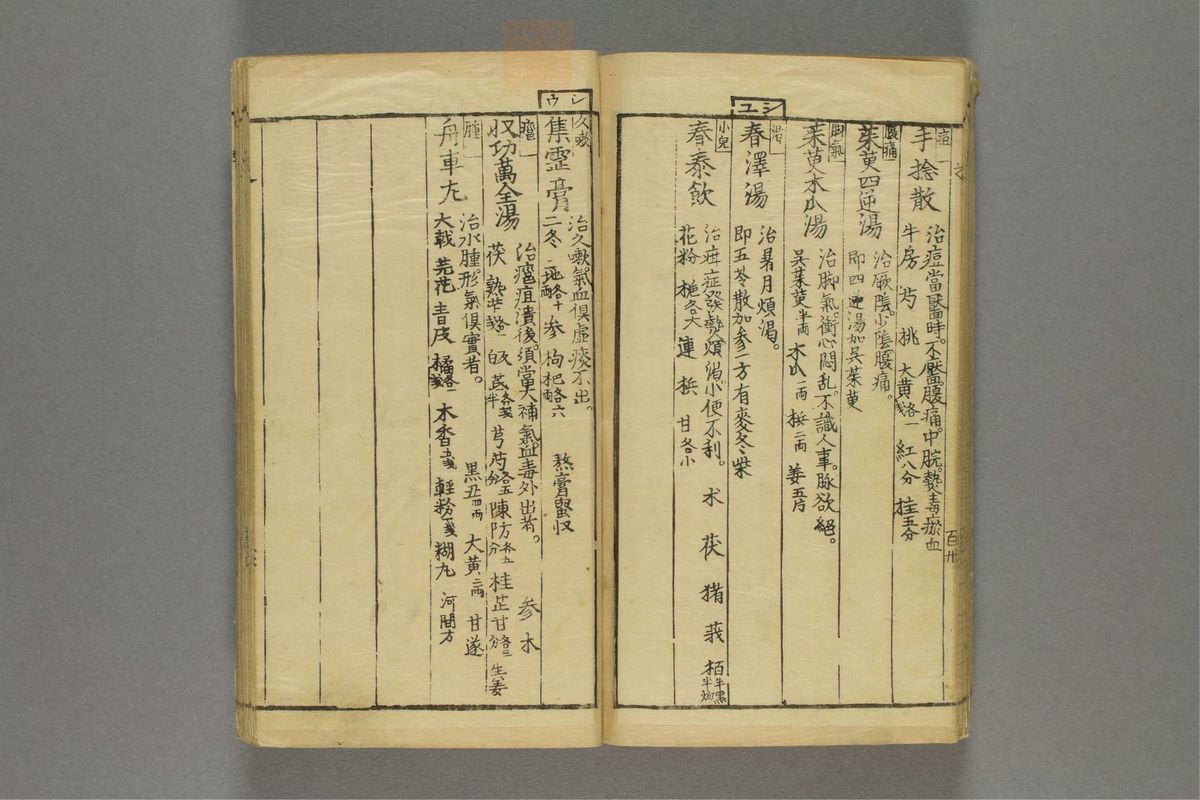 シユ
痘
手捻散
治痘當靨時。不靨腹痛。中脘。熱毒瘀血
牛房 芍 桃 大黄各一戔 紅八分 桂五分
百卅
腹痛
茱萸四逆湯
治厥陰。少陰腹痛。
即四逆湯加呉茱萸
脚氣
茱萸木瓜湯
治脚氣。衝心悶乱。不識人事。脉欲絕。
呉茱萸半両 木瓜一両 梹二両 姜五片
渇
春澤湯
治暑月煩渇。
即五苓散加参一方有麥冬柴
小兒
春泰飲
治疳症發熱煩渇小便不利。 术 茯 猪 莪 栢
花粉 各大 連 梹 甘各小
シウ
久嗽
集霊膏
治久嗽。氣血俱虛。痰不出。
二冬 二地各十両 参 枸杞各六両 熬膏蜜収
癰
収功萬全湯
治癰疽潰後。須當大補氣。血毒外出者。 参 木
茯 熟芐各戔 芪各戔半 芎 芍各五分 陳 防各五分 桂 芷 甘各三分 生姜
腫
舟車丸
治水腫。形氣俱實者。 黒丑四両 大黄二両 甘遂
大戟 芫花 青皮 橘各一 木香五戔 軽粉一戔 糊丸 河間方